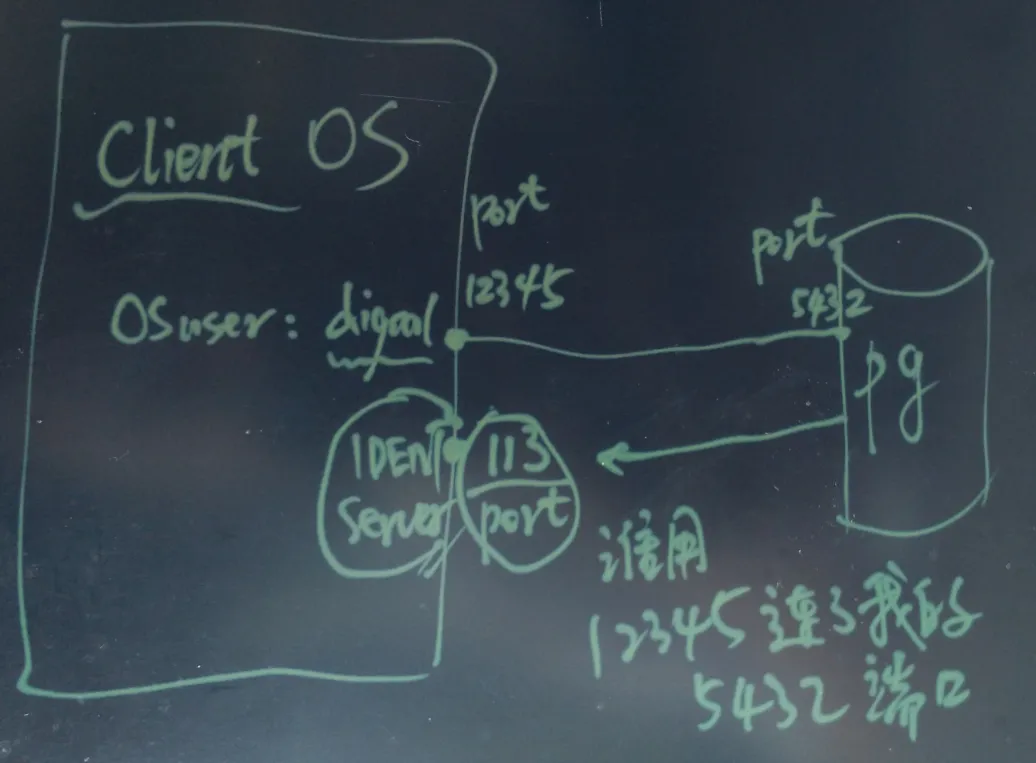 Client OS
port
12345
OS user: digoal
IDENT
Server
113
port
port
5432
pg
谁用
12345 连了我的
5432 端口